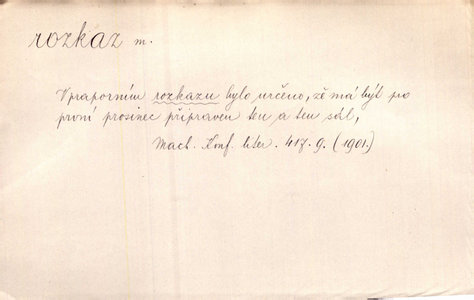 rozkaz m.
V praporním rozkazu bylo určeno, že má být po
první prosinec připraven ten a ten sál,
Mach. Konf. liter. 417.9. (1901.)